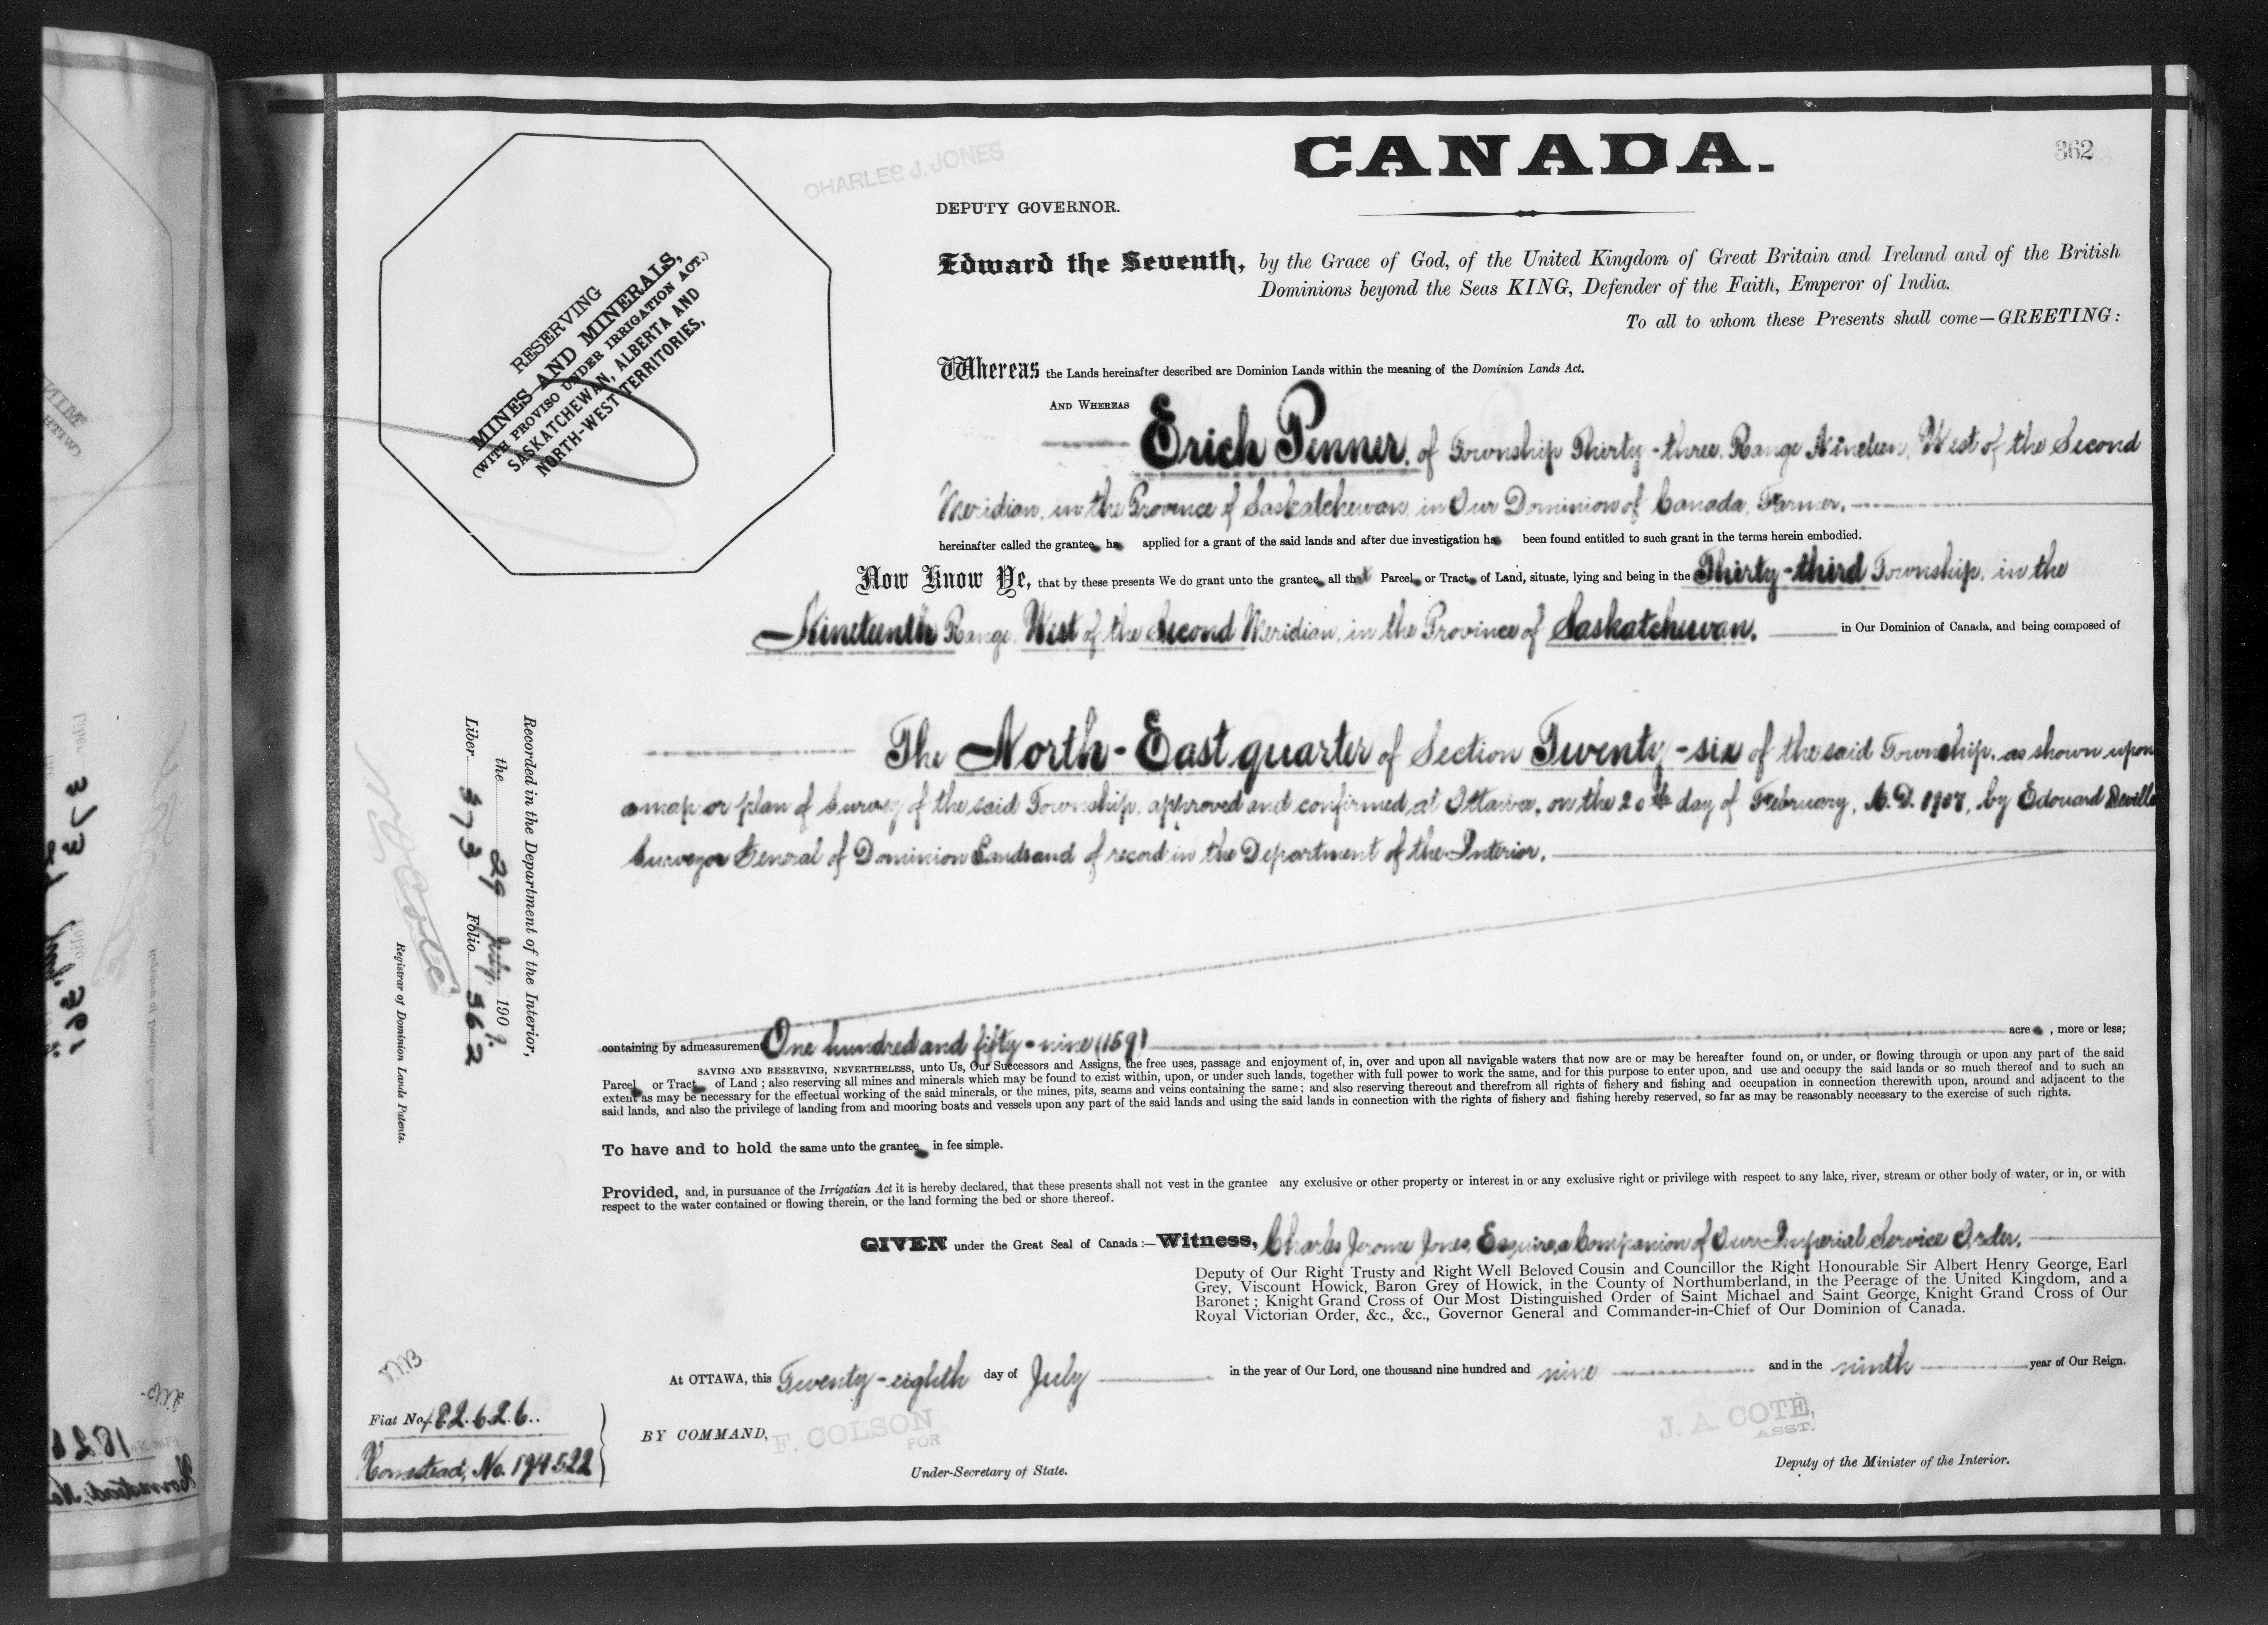 CANADA.
362
CHARLES J. JONES
DEPUTY GOVERNOR.
RESERVING
MINES AND MINERALS,
(WITH PROVISO UNDER IRRIGATION ACT.)
SASKATCHEWAN, ALBERTA AND
NORTH-WEST TERRITORIES,
Edward the Seventh, by the Grace of God, of the United Kingdom of Great Britain and Ireland and of the British
Dominions beyond the Seas KING, Defender of the Faith, Emperor of India.
To all to whom these Presents shall come—GREETING:
Whereas the Lands hereinafter described are Dominion Lands within the meaning of the Dominion Lands Act.
AND WHEREAS
Erich Penner, of Township Thirty-three, Range Nineteen, West of the Second
Meridian, in the Province of Saskatchewan, in Our Dominion of Canada, Farmer.
hereinafter called the grantee ha applied for a grant of the said lands and after due investigation ha been found entitled to such grant in the terms herein embodied.
Now Know Ye, that by these presents We do grant unto the grantee all that Parcel or Tract of Land, situate, lying and being in the Thirty-third Township, in the
Nineteenth Range, West of the Second Meridian, in the Province of Saskatchewan, in Our Dominion of Canada, and being composed of
The North-East quarter of Section Twenty-six of the said Township, as shown upon
a map or plan of Survey of the said Township, approved and confirmed, at Ottawa, on the 20th day of February, A.D. 1907, by Edouard Deville
Surveyor General of Dominion Lands and of record in the Department of the Interior.
containing by admeasurement One hundred and fifty-nine (159) acre , more or less;
SAVING AND RESERVING, NEVERTHELESS, unto Us, Our Successors and Assigns, the free uses, passage and enjoyment of, in, over and upon all navigable waters that now are or may be hereafter found on, or under, or flowing through or upon any part of the said
Parcel or Tract of Land; also reserving all mines and minerals which may be found to exist within, upon, or under such lands, together with full power to work the same, and for this purpose to enter upon, and use and occupy the said lands or so much thereof and to such an
extent as may be necessary for the effectual working of the said minerals, or the mines, pits, seams and veins containing the same; and also reserving thereout and therefrom all rights of fishery and fishing and occupation in connection therewith upon, around and adjacent to the
said lands, and also the privilege of landing from and mooring boats and vessels upon any part of the said lands and using the said lands in connection with the rights of fishery and fishing hereby reserved, so far as may be reasonably necessary to the exercise of such rights.
To have and to hold the same unto the grantee in fee simple.
Provided, and, in pursuance of the Irrigatian Act it is hereby declared, that these presents shall not vest in the grantee any exclusive or other property or interest in or any exclusive right or privilege with respect to any lake, river, stream or other body of water, or in, or with
respect to the water contained or flowing therein, or the land forming the bed or shore thereof.
GIVEN under the Great Seal of Canada:—Witness, Charles Jerome Jones, Esquire, a Companion of Our Imperial Service Order.
Deputy of Our Right Trusty and Right Well Beloved Cousin and Councillor the Right Honourable Sir Albert Henry George, Earl
Grey, Viscount Howick, Baron Grey of Howick, in the County of Northumberland, in the Peerage of the United Kingdom, and a
Baronet; Knight Grand Cross of Our Most Distinguished Order of Saint Michael and Saint George, Knight Grand Cross of Our
Royal Victorian Order, &c., &c., Governor General and Commander-in-Chief of Our Dominion of Canada.
At OTTAWA, this Twenty-eighth day of July in the year of Our Lord, one thousand nine hundred and nine and in the ninth year of Our Reign.
BY COMMAND,
F. COLSON
FOR
Under-Secretary of State.
J. A. COTÉ,
ASST.
Deputy of the Minister of the Interior.
Recorded in the Department of the Interior,
the 29 July 1909.
Liber 373 Folio 362
Registrar of Dominion Lands Patents.
Fiat No. 182626..
Homestead, No. 194522